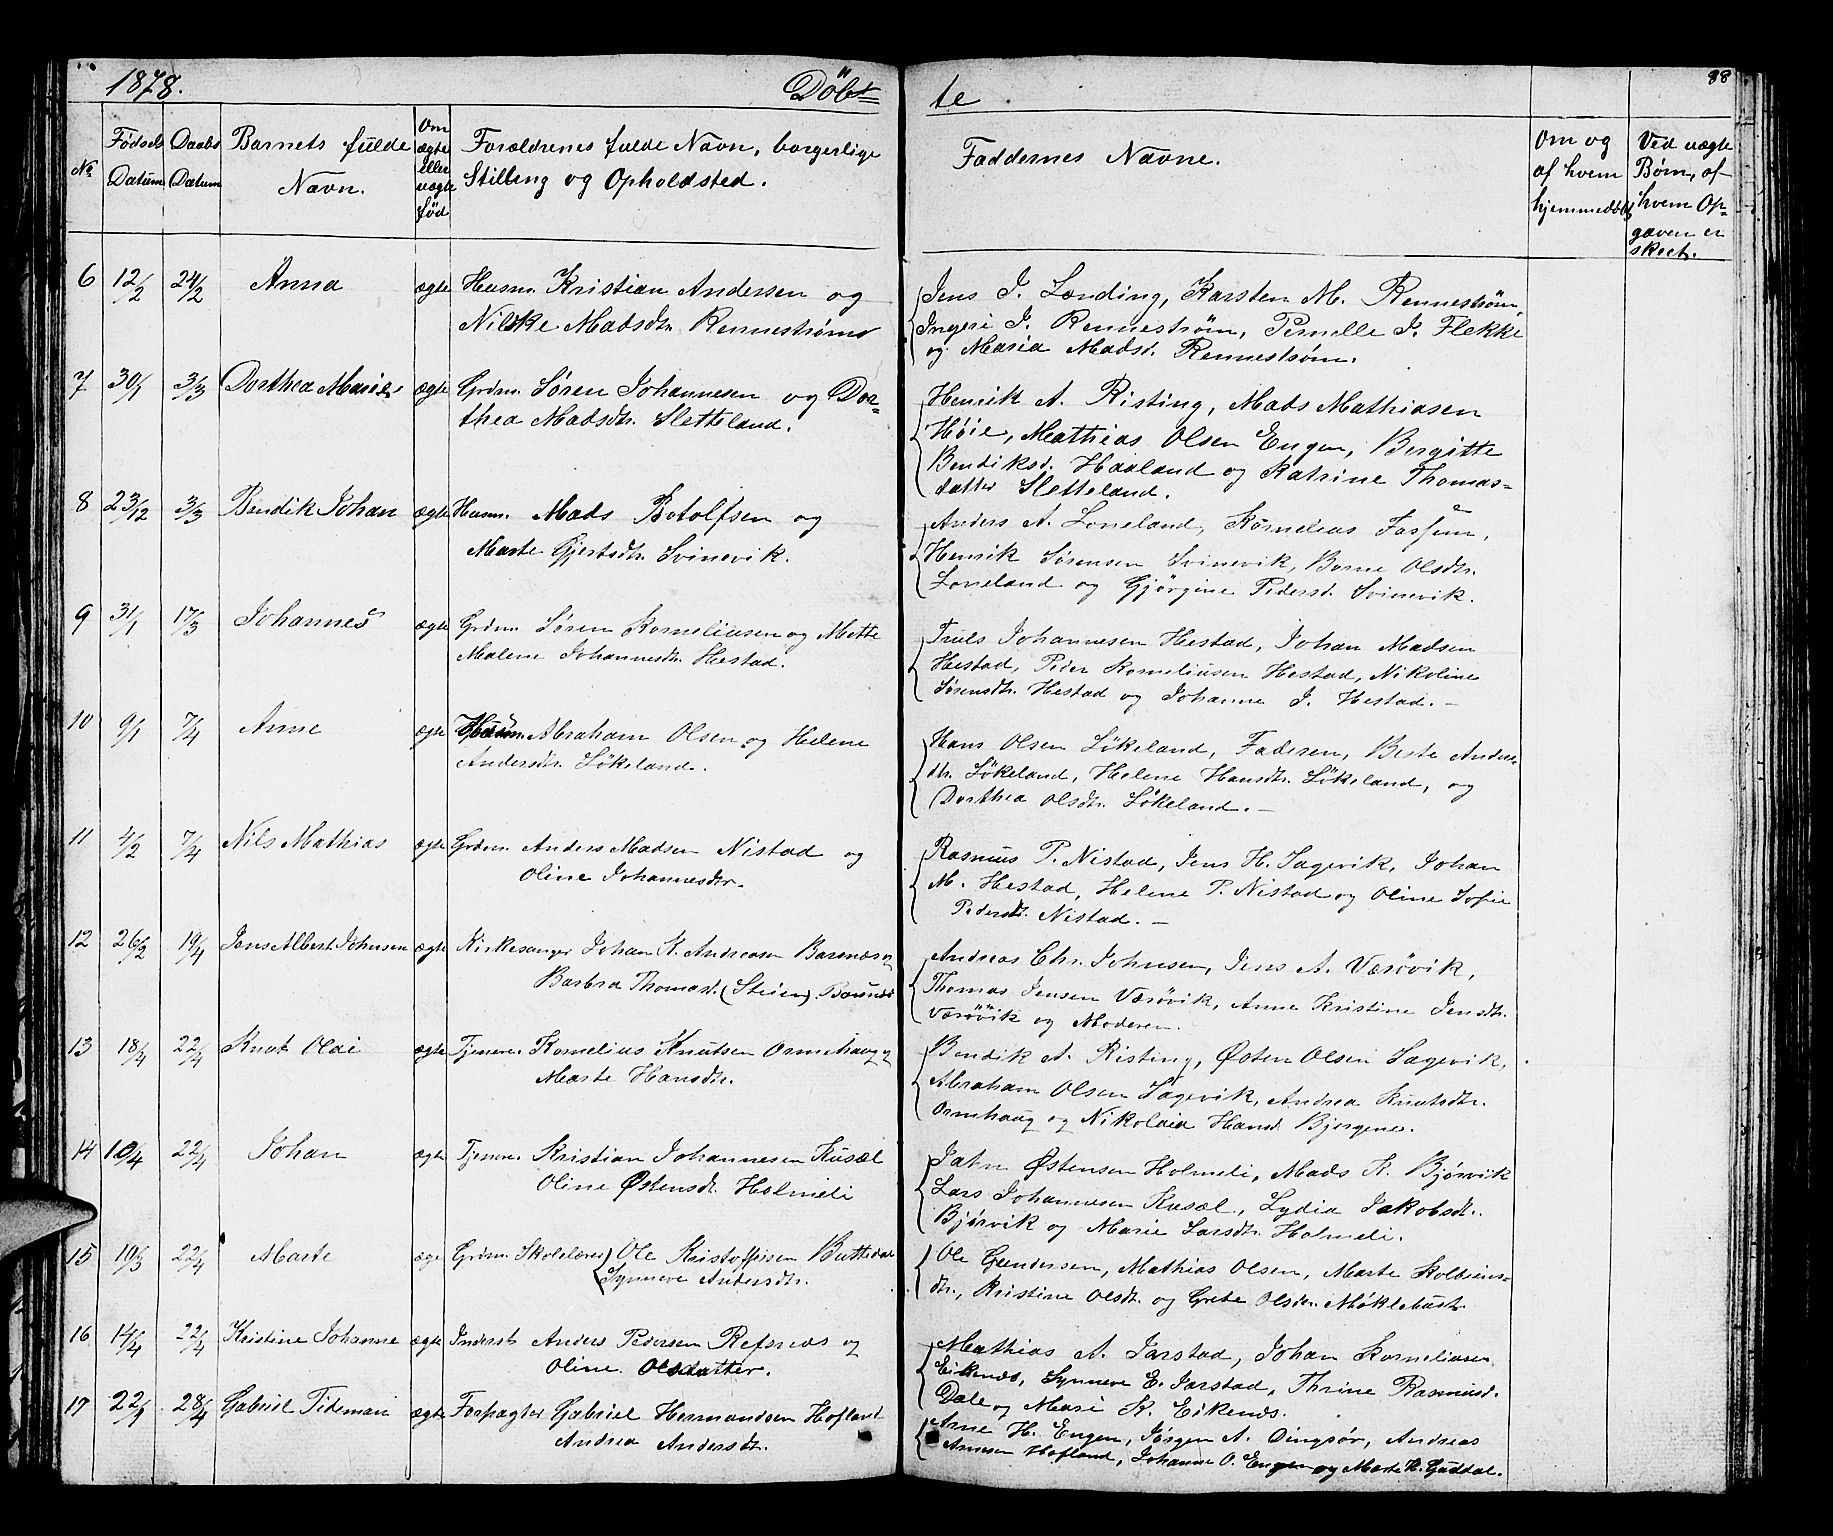 1878. Döbte 88
No
Fødsels Datum
Daabs Datum
Barnets fulde Navn.
Om ægte eller uægte fød
Forældrenes fulde Navn, borgerlige
Stilling og Opholdsted.
Faddernes Navne.
Om og af hvem hjemmedøbt
Ved uægte Børn, af hvem Opgaven er skeet.
6 12/2 24/2 Anna ægte Husm. Kristian Andersen og
Nilske Madsdtr. Rennestrøm
Jens J. Lending, Karsten M. Rennestrøm,
Ingeri J. Rennestrøm, Pernelle J. Flekke
og Maria Madsd. Rennestrøm.
7 30/1 3/3 Dorthea Marie ægte Grdm. Søren Johannesen og Dor=
thea Madsdtr. Sletteland.
Henrik A. Risting, Mads Mathiasen
Høie, Mathias Olsen Engen, Bergitte
Bendiksd. Haaland og Katrine Thomas=
datter Sletteland.
8 23/12 3/3 Bendik Johan ægte Husm. Mads Botolfsen og
Marte Gjertsdtr. Svinevik.
Anders A. Loneland, Kornelius Fossum,
Henrik Sørensen Svinevik, Borne Olsdtr.
Loneland og Gjørgine Pedersd. Svinevik.
9 31/1 17/3 Johannes ægte Grdm. Søren Korneliusen og Mette
Malene Johannesdtr. Hestad.
Truls Johannesen Hestad, Johan Madsen
Hestad, Peder Korneliusen Hestad, Nikoline
Sørensdtr. Hestad og Johanne J. Hestad. –
10 9/1 7/4 Anne ægte Husm. Abraham Olsen og Helene
Andersdtr. Løkeland.
Hans Olsen Løkeland, Faderen, Berte Anders=
dtr. Løkeland, Helene Hansdtr. Løkeland, og
Dorthea Olsdtr. Løkeland. –
11 4/2 7/4 Nils Mathias ægte Grdm. Anders Madsen Nistad og
Oline Johannesdtr.
Rasmus P. Nistad, Jens H. Sagevik, Johan
M. Hestad, Helene P. Nistad og Oline Sofie
Pedersd. Nistad. –
12 26/2 19/4 Jens Albert Johnsen ægte Kirkesanger Johan K. Andreasen Barsnæs og
Barbra Thomasd. (Steien)
Andreas Chr. Johnsen, Jens A. Værøvik,
Thomas Jensen Værøvik, Anne Kristine Jensdtr.
Værøvik og Moderen.
13 18/4 22/4 Knut Olai ægte Tjenere Kornelius Knutsen Ormehaug og
Marte Hansdtr.
Bendik A. Risting, Østen Olsen Sagevik,
Abraham Olsen Sagevik, Andrea Knutsdtr.
Ormhaug og Nikolaia Hansd. Bjergene.
14 10/4 22/4 Johan ægte Tjenere Kristian Johannesen Kusæl
Oline Østensdt. Holmeli
Jahn Østensen Holmeli, Mads K. Bjørvik
Lars Johannesen Kusæl, Lydia Jakobsdt.
Bjørvik og Marie Larsdtr. Holmeli.
15 19/3 22/4 Marte ægte Grdm. Skolelærer Ole Kristoffersen Buttedal
Synneve Andersdtr.
Ole Gundersen, Mathias Olsen, Marte Kolbeins=
dtr., Kristine Olsdt. og Grete Olsdtr. Møklebust.
16 14/4 22/4 Kristine Johanne ægte Inderst Anders Pedersen Refsnæs og
Oline Olsdatter.
Mathias A. Jarstad, Johan Korneliusen
Eikenæs, Synneve E. Jarstad, Thrine Rasmusd.
Dale og Mari K. Eikenæs.
17 22/1 28/4 Gabriel Tideman ægte Forpagter Gabriel Hermandsen Hofland
Andrea Andersdt.
Arne H. Engen, Jørgen A. Dingsør, Andreas
Annesen Hofland, Johanne O. Engen og Marte H. Guddal.